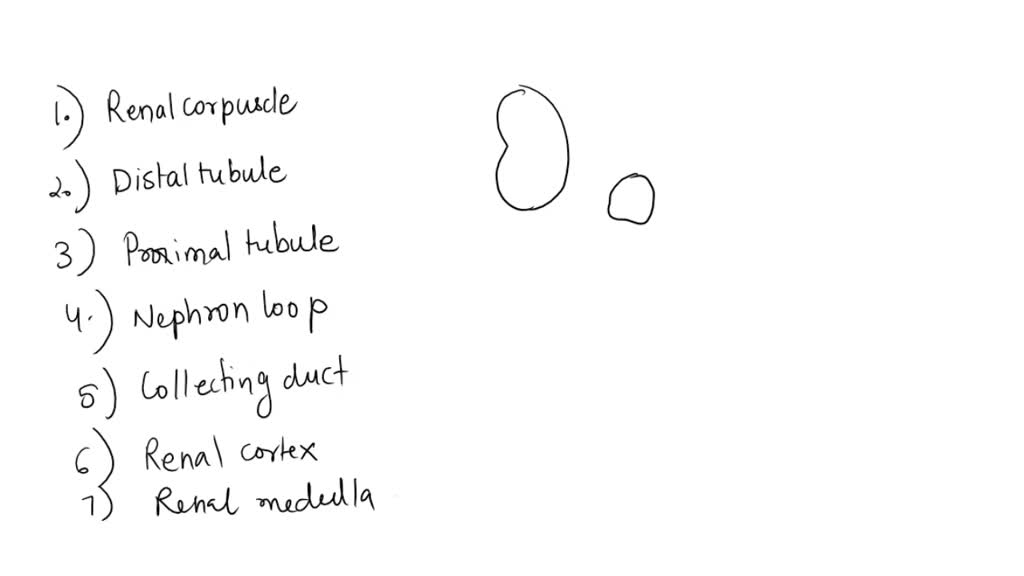 1.) Renal corpuscle
2.) Distal tubule
3) Proximal tubule
4.) Nephron loop
5) Collecting duct
6) Renal cortex
7) Renal medulla